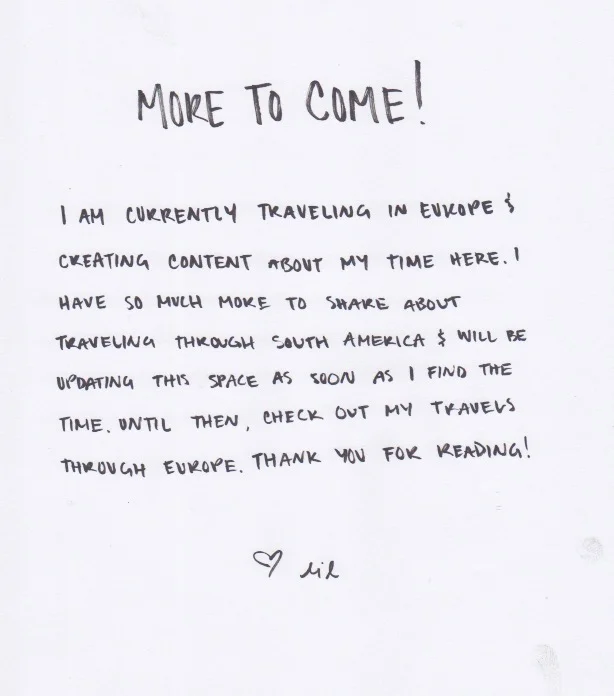 MORE TO COME!
I AM CURRENTLY TRAVELING IN EUROPE &
CREATING CONTENT ABOUT MY TIME HERE. I
HAVE SO MUCH MORE TO SHARE ABOUT
TRAVELING THROUGH SOUTH AMERICA & WILL BE
UPDATING THIS SPACE AS SOON AS I FIND THE
TIME. UNTIL THEN, CHECK OUT MY TRAVELS
THROUGH EUROPE. THANK YOU FOR READING!
♡ lil